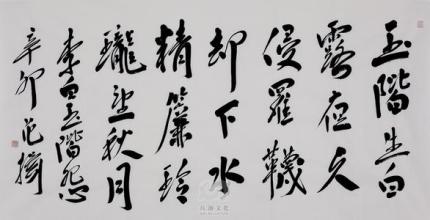 玉階生白
露夜久
侵羅襪
却下水
精簾玲
瓏望秋月
李白玉階怨
辛卯